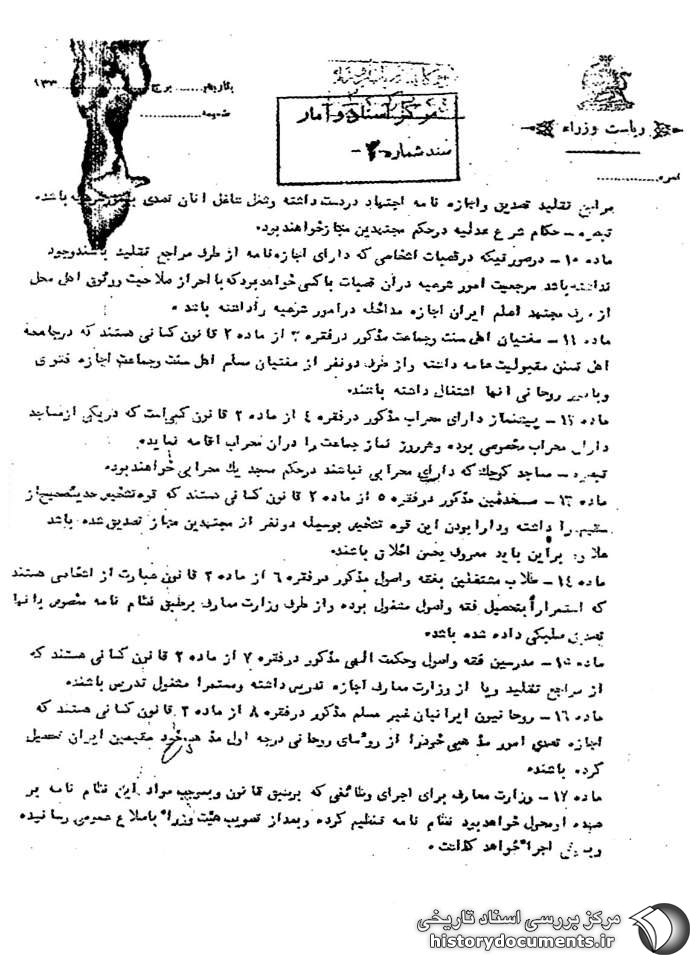 بتاریخ ....... برج ....... ۱۳۳
ضمیمه ............
مرکز اسناد و آمار
سند شماره ۲-
ریاست وزراء
نمره ............
مراجع تقلید تصدیق واجازه نامه اجتهاد دردست داشته وشغل شاغل آنان تصدی بامور باشد.
تبصره - حکام شرع عدلیه درحکم مجتهدین مجازخواهندبود.
ماده ۱۰- درصورتیکه درقصبات اشخاصی که دارای اجازه‌نامه از طرف مراجع تقلید باشندوجود
نداشته‌باشد مرجعیت امور شرعیه درآن قصبات باکسی خواهدبودکه بااحراز صلاحیت ووثوق اهل محل
از طرف مجتهد اعلم ایران اجازه مداخله درامور شرعیه راداشته باشد.
ماده ۱۱- مفتیان اهل سنت وجماعت مذکور درفقره ۳ از ماده ۲ قانون کسانی هستند که درجامعه
اهل تسنن مقبولیت عامه داشته واز طرف دونفر از مفتیان مسلم اهل سنت وجماعت اجازه فتوی
وبامور روحانی آنها اشتغال داشته باشند.
ماده ۱۲- پیشنماز دارای محراب مذکور درفقره ٤ از ماده ۲ قانون کسی‌است که دریکی ازمساجد
دارای محراب مخصوصی بوده وهرروز نماز جماعت را درآن محراب اقامه نماید.
تبصره - مساجد کوچك که دارای محرابی نباشند درحکم مسجد یك محرابی خواهندبود.
ماده ۱۳- محدثین مذکور درفقره ۵ از ماده ۲ قانون کسانی هستند که قوه‌تشخیص حدیث‌صحیح‌از
سقیم را داشته ودارابودن این قوه تشخیص بوسیله دونفر از مجتهدین مجاز تصدیق شده باشد
علاوه براین باید معروف بحسن اخلاق باشند.
ماده ۱٤- طلاب مشتغلین بفقه واصول مذکور درفقره ٦ از ماده ۲ قانون عبارت از اشخاصی هستند
که استمراراً بتحصیل فقه واصول مشغول بوده واز طرف وزارت معارف برطبق نظام نامه مخصوص بآنها
تصدیق داده شده باشد.
ماده ۱۵- مدرسین فقه واصول وحکمت الهی مذکور درفقره ۷ از ماده ۲ قانون کسانی هستند که
از مراجع تقلید ویا از وزارت معارف اجازه تدریس داشته ومستمرا مشغول تدریس باشند.
ماده ۱٦- روحانیون ایرانیان غیر مسلم مذکور درفقره ۸ از ماده ۲ قانون کسانی هستند که
اجازه تصدی امور مذهبی خودرا از روسای روحانی درجه اول مذهب خود مقیمین ایران تحصیل
کرده باشند.
ماده ۱۷- وزارت معارف برای اجرای وظائفی که برطبق قانون وبموجب مواد این نظام نامه بر
عهده اومحول خواهدبود نظام نامه تنظیم کرده وبعداز تصویب هیئت وزراء باطلاع عمومی رسانیده
وبموقع اجراء خواهد گذاشت.
مرکز بررسی اسناد تاریخی
historydocuments.ir